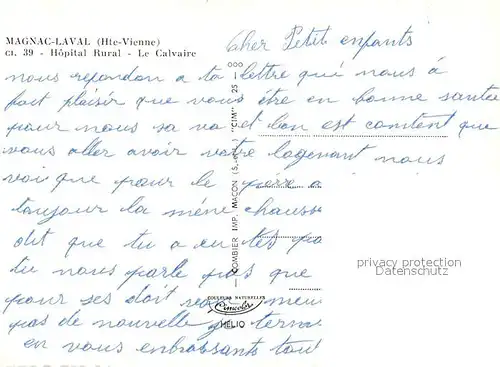 MAGNAC-LAVAL (Hte-Vienne)
CI. 39 - Hôpital Rural - Le Calvaire
Cher Petit enfants
nous repondon a ta lettre qui nous á
fait plaisir que vous être en bonne santer
pour nous sa va et lon est content que
vous aller avoir votre logenant nous
voi que pour le a
toujour la même chausse
dit que tu a eu tes
tu nous parle pas que
pour ses doit
pas de nouvelle je terme
en vous enbrassants tou
COMBIER IMP. MACON "CIM"
COULEURS NATURELLES
HELIO
privacy protection
Datenschutz